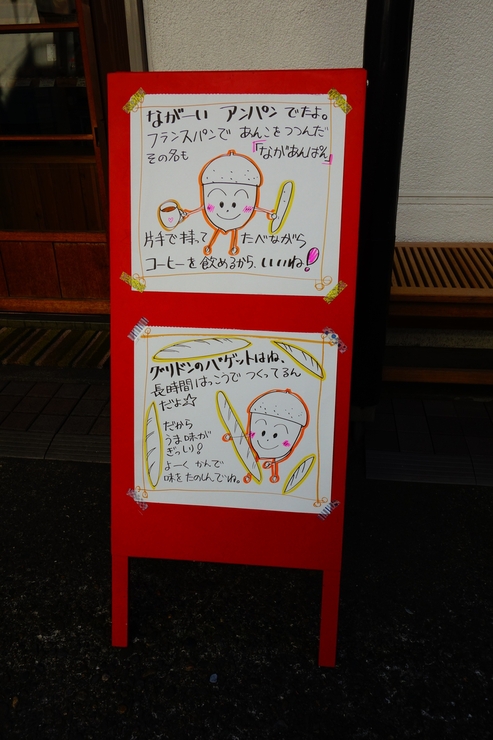 ながーい アンパン でたよ。
フランスパンで あんこをつつんだ
その名も 『ながあんぱん』
片手で持って たべながら
コーヒーを飲めるから、いいね!
グリドンのバゲットはね、
長時間はっこうで つくってるん
だよ☆
だから
うま味が
ぎっしり!
よーく かんで
味をたのしんでね。